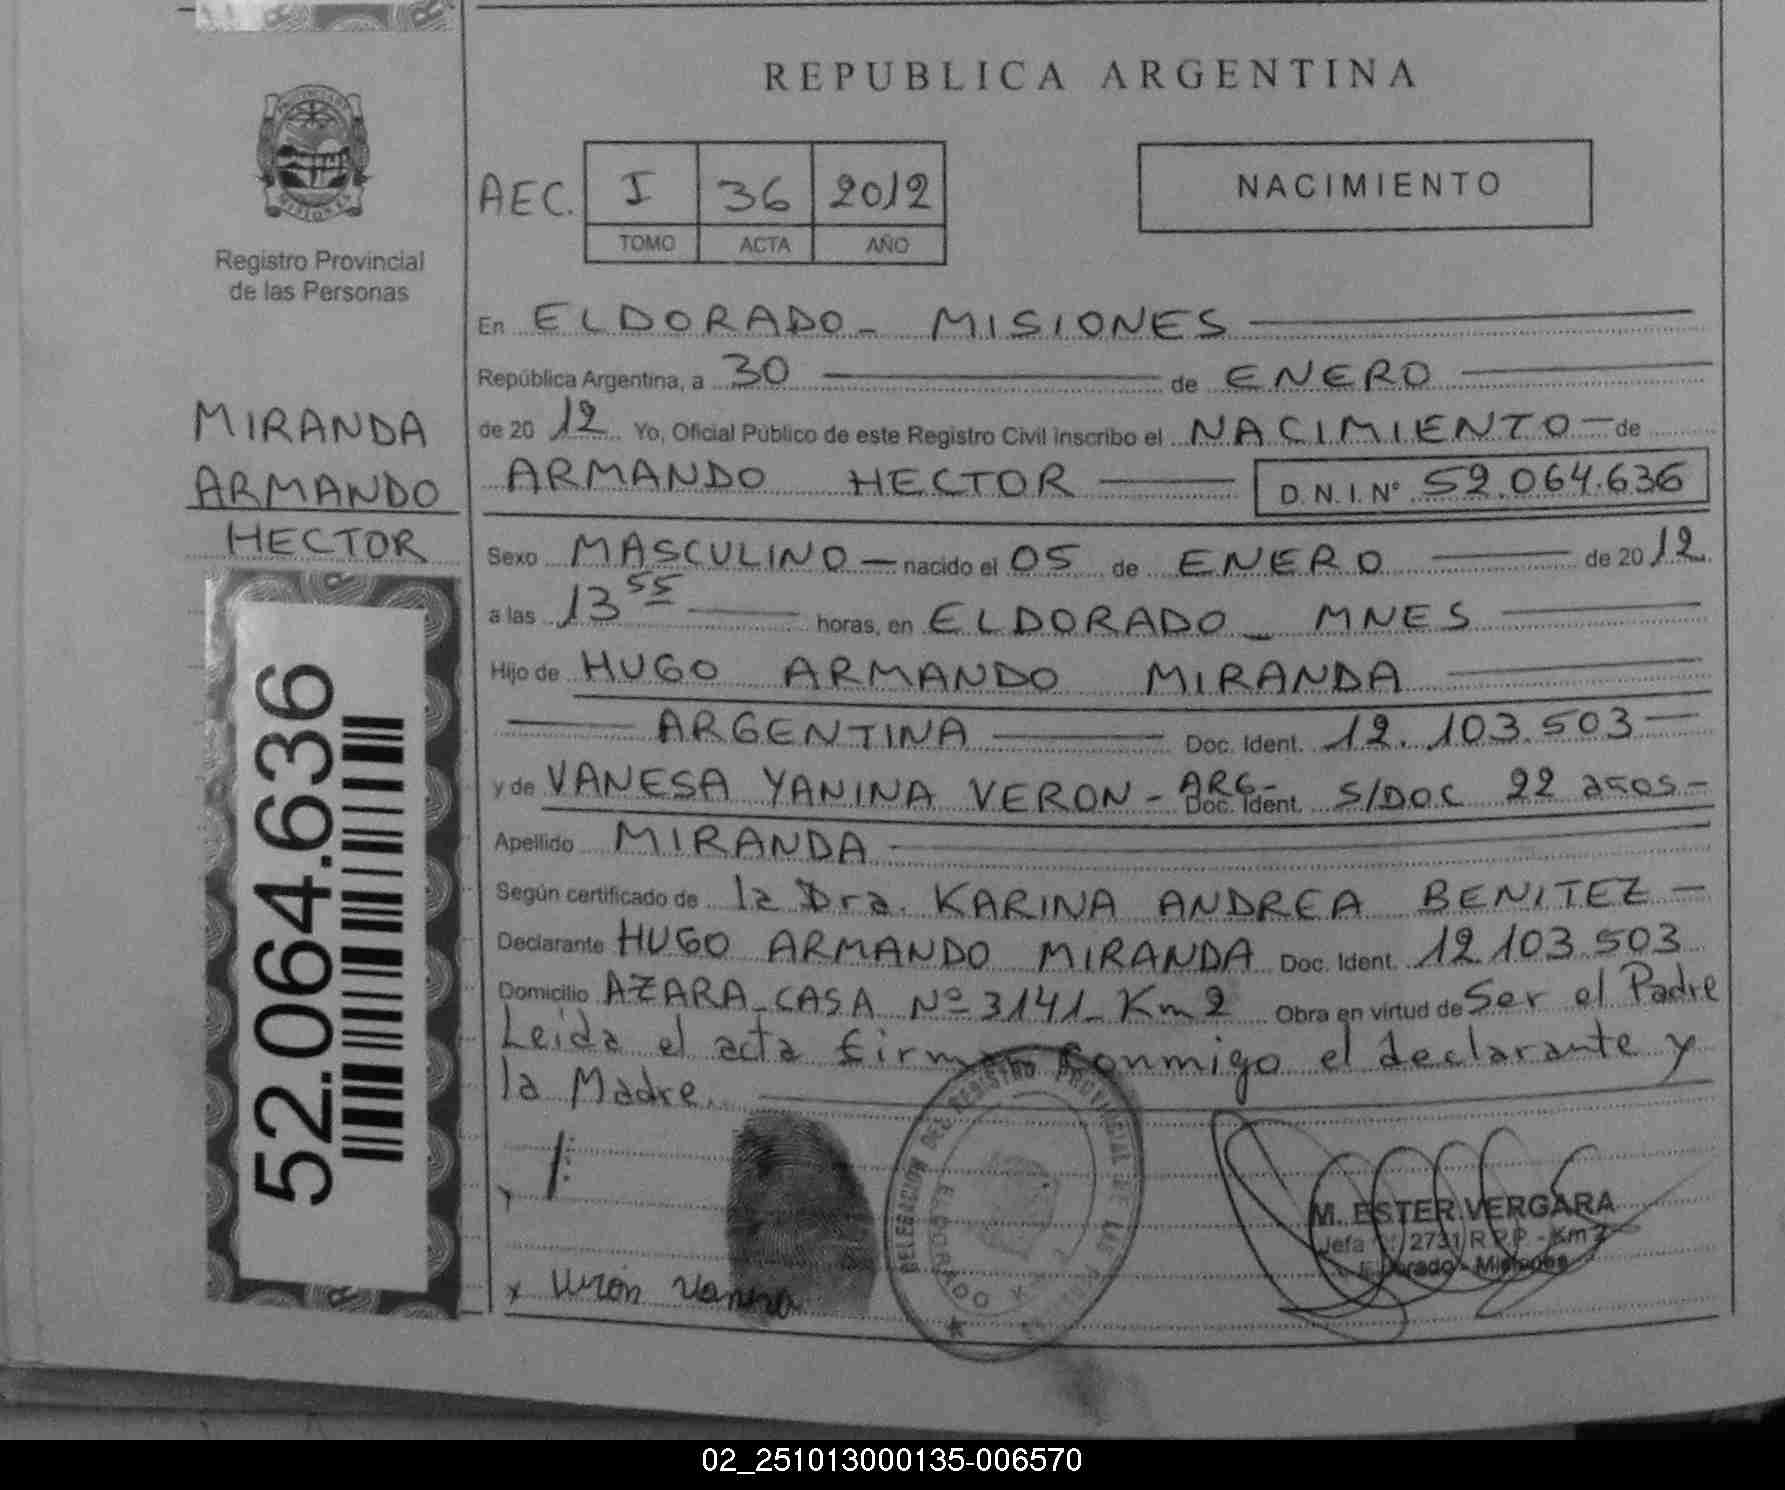 REPUBLICA ARGENTINA
PROVINCIA DE
MISIONES
Registro Provincial
de las Personas
AEC. I 36 2012
TOMO ACTA AÑO
NACIMIENTO
MIRANDA
ARMANDO
HECTOR
52.064.636
En ELDORADO - MISIONES
República Argentina, a 30 de ENERO
de 20 12 Yo, Oficial Público de este Registro Civil inscribo el NACIMIENTO - de
ARMANDO HECTOR D.N.I. Nº 52.064.636
Sexo MASCULINO - nacido el 05 de ENERO de 20 12
a las 13 55 horas, en ELDORADO - MNES
Hijo de HUGO ARMANDO MIRANDA
ARGENTINA Doc. Ident. 12.103.503
y de VANESA YANINA VERON - ARG - Doc. Ident. S/DOC 22 años -
Apellido MIRANDA
Según certificado de la Dra. KARINA ANDREA BENITEZ -
Declarante HUGO ARMANDO MIRANDA Doc. Ident. 12.103.503
Domicilio AZARA - CASA Nº 3141 - Km 2 Obra en virtud de Ser el Padre
Leida el acta firman conmigo el declarante y
la Madre.
DELEGACION DEL REGISTRO PROVINCIAL DE LAS
ELDORADO
M. ESTER VERGARA
Jefa 2731 R.P.P. - Km 2
Eldorado - Misiones
x Verón Vanesa
02_251013000135-006570